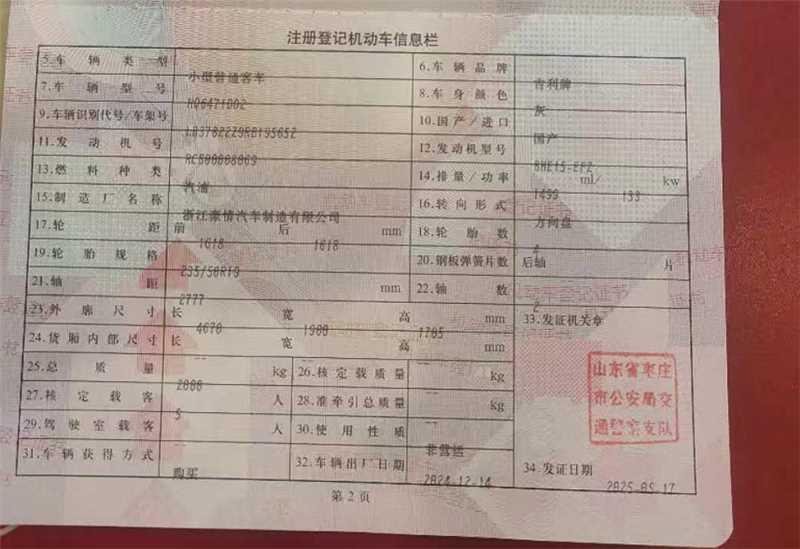 注册登记机动车信息栏
5.车辆类型 小型普通客车 6.车辆品牌 吉利牌
7.车辆型号 HQ6471D02 8.车身颜色 灰
9.车辆识别代号/车架号 10.国产/进口 国产
11.发动机号 RCB00008069 12.发动机型号 BHE15-EFZ
13.燃料种类 汽油 14.排量/功率 1499 ml/ 133 kw
15.制造厂名称 浙江豪情汽车制造有限公司 16.转向形式 方向盘
17.轮距 前 1618 后 1618 mm 18.轮胎数 4
19.轮胎规格 235/50R19 20.钢板弹簧片数 后轴 片
21.轴距 2777 mm 22.轴数 2
23.外廓尺寸 长 4670 宽 1900 高 1705 mm 33.发证机关章
24.货厢内部尺寸 长 -- 宽 -- 高 -- mm
25.总质量 2000 kg 26.核定载质量 -- kg
27.核定载客 5 人 28.准牵引总质量 -- kg
29.驾驶室载客 -- 人 30.使用性质 非营运
31.车辆获得方式 购买 32.车辆出厂日期 2024-12-14 34.发证日期 2025-05-17
山东省枣庄
市公安局交
通警察支队
第2页